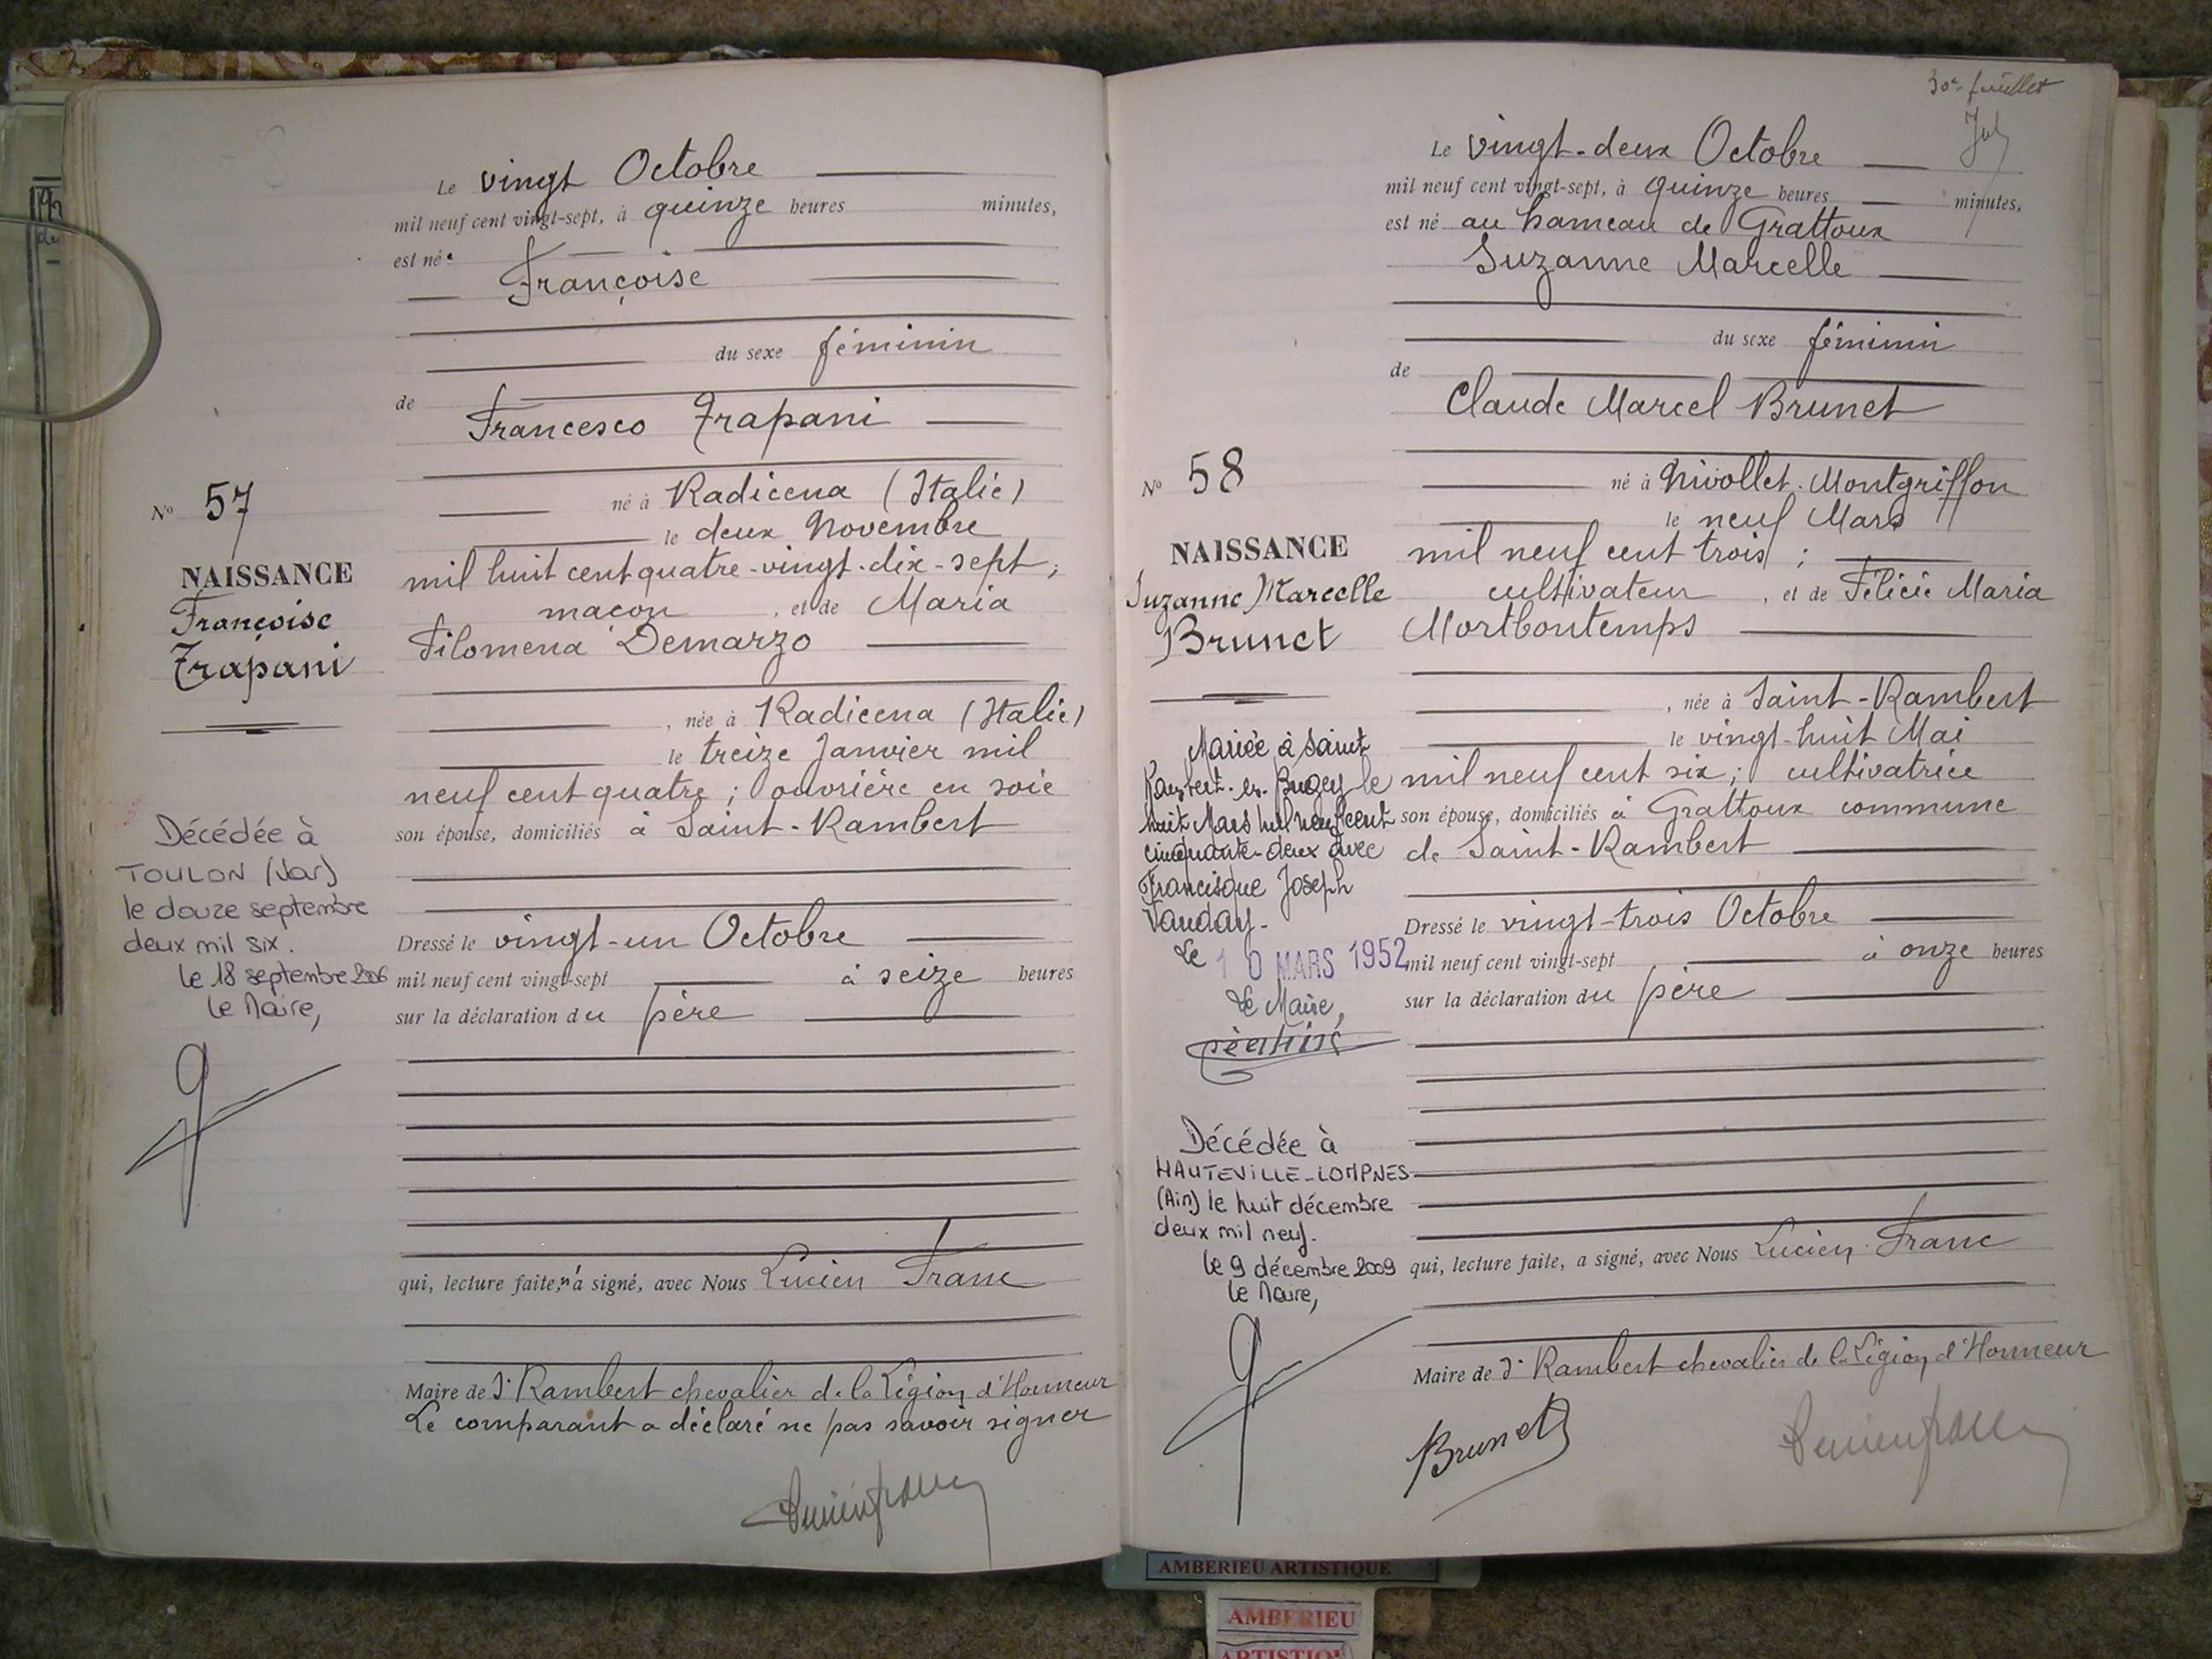 Le vingt Octobre
mil neuf cent vingt-sept, à quinze heures minutes,
est née
Françoise
du sexe féminin
de
Francesco Trapani
né à Radicena (Italie)
le deux Novembre
mil huit cent quatre-vingt-dix-sept,
maçon, et de Maria
Filomena Demarzo
, née à Radicena (Italie)
le treize Janvier mil
neuf cent quatre ; ouvrière en soie
son épouse, domiciliés à Saint-Rambert
Dressé le vingt-un Octobre
mil neuf cent vingt-sept à seize heures
sur la déclaration du père
qui, lecture faite, n'a signé, avec Nous Lucien Franc
Maire de St Rambert chevalier de la Légion d'Honneur
Le comparant a déclaré ne pas savoir signer
N° 57
NAISSANCE
Françoise
Trapani
Décédée à
TOULON (Var)
le douze septembre
deux mil six.
le 18 septembre 2006
le Maire,
30e feuillet
Le vingt-deux Octobre
mil neuf cent vingt-sept, à quinze heures minutes,
est né au hameau de Grattoux
Suzanne Marcelle
du sexe féminin
de
Claude Marcel Brunet
né à Nivollet-Montgriffon
le neuf Mars
mil neuf cent trois ;
cultivateur, et de Félicie Maria
Mortbontemps
, née à Saint-Rambert
le vingt-huit Mai
mil neuf cent six ; cultivatrice
son épouse, domiciliés à Grattoux commune
de Saint-Rambert
Dressé le vingt-trois Octobre
mil neuf cent vingt-sept à onze heures
sur la déclaration du père
qui, lecture faite, a signé, avec Nous Lucien Franc
Maire de St Rambert chevalier de la Légion d'Honneur
Brunet
N° 58
NAISSANCE
Suzanne Marcelle
Brunet
Mariée à Saint
Rambert-en-Bugey le
huit Mars mil neuf cent
cinquante-deux avec
Francisque Joseph
Le 10 MARS 1952
Le Maire,
Décédée à
HAUTEVILLE-LOMPNES
(Ain) le huit décembre
deux mil neuf.
le 9 décembre 2009
le Maire,
AMBERIEU ARTISTIQUE
AMBERIEU